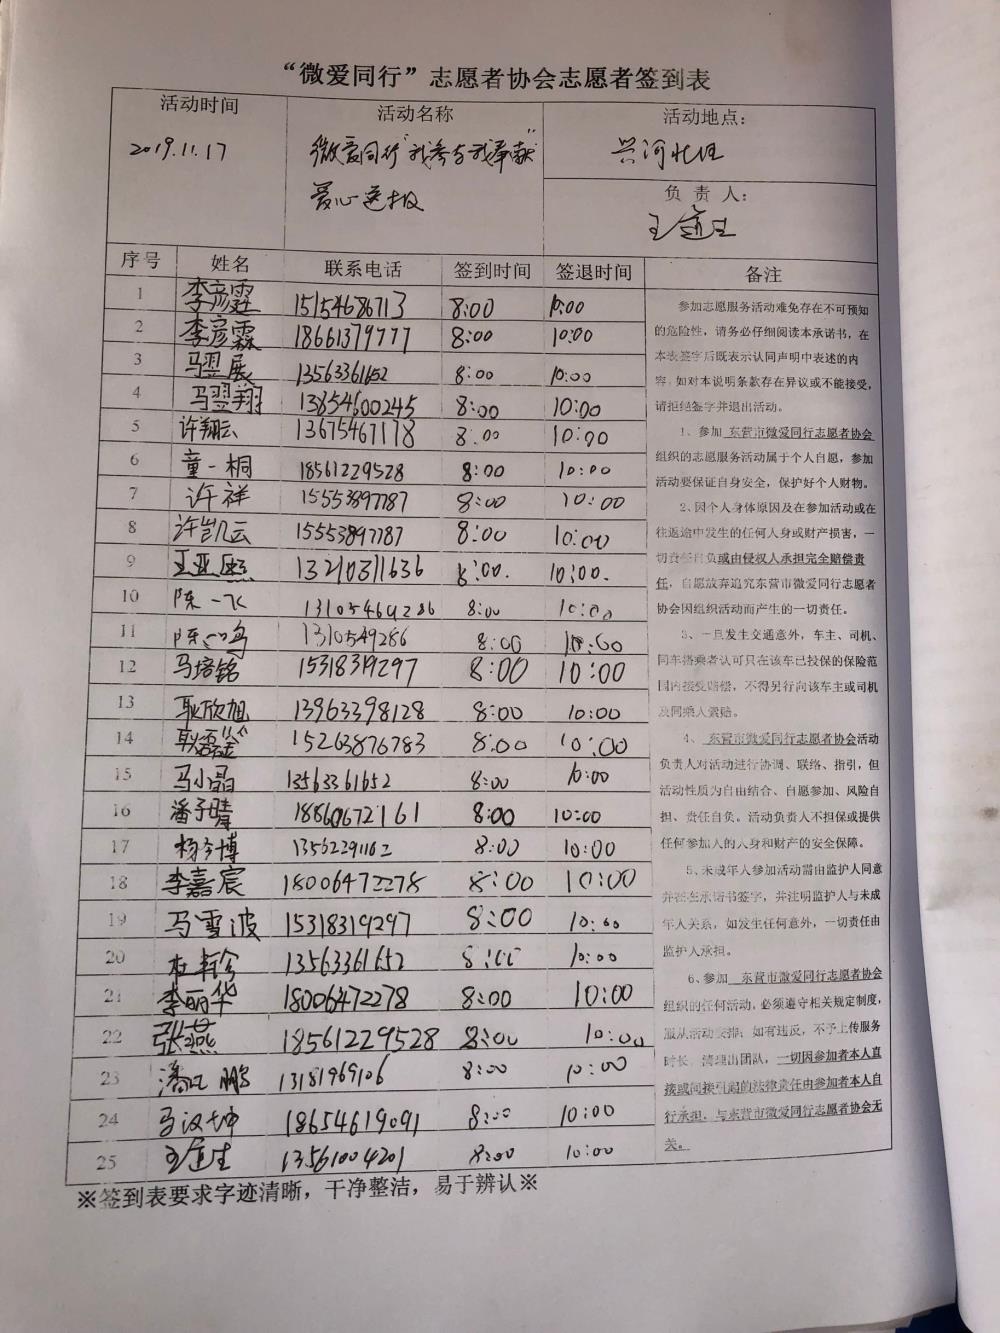 “微爱同行”志愿者协会志愿者签到表
活动时间 活动名称 活动地点：
2019.11.17 微爱同行“我参与我奉献”
爱心送报
负责人：
序号 姓名 联系电话 签到时间 签退时间 备注
1 李彦霆 15154686713 8:00 10:00
2 李彦霖 18661379777 8:00 10:00
3 马翌展 13563361652 8:00 10:00
4 马翌翔 13854600245 8:00 10:00
5 许翔云 13675467178 8:00 10:00
6 童一桐 18561229528 8:00 10:00
7 许祥 15553897787 8:00 10:00
8 许凯云 15553897787 8:00 10:00
9 王亚熙 13210311636 8:00. 10:00.
10 陈一飞 13105469286 8:00 10:00
11 陈一鸣 1310549286 8:00 10:00
12 马培铭 15318319297 8:00 10:00
13 耿欣旭 13963398128 8:00 10:00
14 15263876783 8:00 10:00
15 马小晶 13563361652 8:00 10:00
16 潘子晴 18860672161 8:00 10:00
17 13562291162 8:00 10:00
18 李嘉宸 18006472278 8:00 10:00
19 马雪波 15318319297 8:00 10:00
20 13563361652 8:00 10:00
21 李丽华 18006472278 8:00 10:00
22 张燕 18561229528 8:00 10:00
23 13181969106 8:00 10:00
24 马汉坤 18654619091 8:00 10:00
25 13561004201 8:00 10:00
参加志愿服务活动难免存在不可预知
的危险性，请务必仔细阅读本承诺书，在
本表签字后既表示认同声明中表述的内
容，如对本说明条款存在异议或不能接受，
请拒绝签字并退出活动。
1、参加 东营市微爱同行志愿者协会
组织的志愿服务活动属于个人自愿，参加
活动要保证自身安全，保护好个人财物。
2、因个人身体原因及在参加活动或在
往返途中发生的任何人身或财产损害，一
切责任自负或由侵权人承担完全赔偿责
任，自愿放弃追究东营市微爱同行志愿者
协会因组织活动而产生的一切责任。
3、一旦发生交通意外，车主、司机、
同车搭乘者认可只在该车已投保的保险范
围内接受赔偿，不得另行向该车主或司机
及同乘人索赔。
4、 东营市微爱同行志愿者协会活动
负责人对活动进行协调、联络、指引，但
活动性质为自由结合、自愿参加、风险自
担、责任自负。活动负责人不担保或提供
任何参加人的人身和财产的安全保障。
5、未成年人参加活动需由监护人同意
并在在承诺书签字，并注明监护人与未成
年人关系，如发生任何意外，一切责任由
监护人承担。
6、参加 东营市微爱同行志愿者协会
组织的任何活动，必须遵守相关规定制度，
服从活动安排；如有违反，不予上传服务
时长、清理出团队，一切因参加者本人直
接或间接引起的法律责任由参加者本人自
行承担，与东营市微爱同行志愿者协会无
关。
※签到表要求字迹清晰，干净整洁，易于辨认※